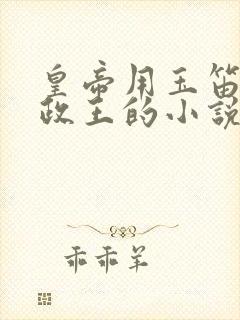 皇帝用玉笛
政王的小說
乖乖羊